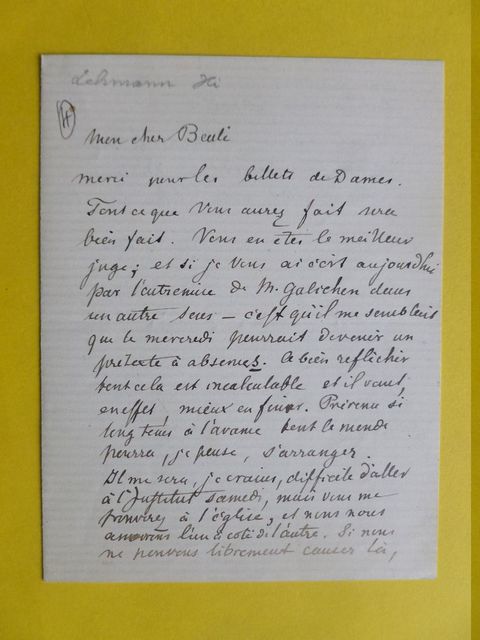 Lehmann Hi
H
Mon cher Beulé
merci pour les billets de Dames.
Tout ce que vous aurez fait sera
bien fait. Vous en êtes le meilleur
juge; et si je vous ai écrit aujourdhui
par l'entremise de M. Galichon dans
un autre sens – c'est qu'il me semblait
que le mercredi pourrait devenir un
prétexte à absences. A bien réfléchir
tout cela est incalculable et il vaut,
en effet, mieux en finir. Prévenu si
long tems à l'avance tout le monde
pourra, je pense, s'arranger.
Il me sera, je crains, difficile d'aller
à l'Institut samedi, mais vous me
trouverez à l'église, et nous nous
l'un à coté de l'autre. Si nous
ne pouvons librement causer là,